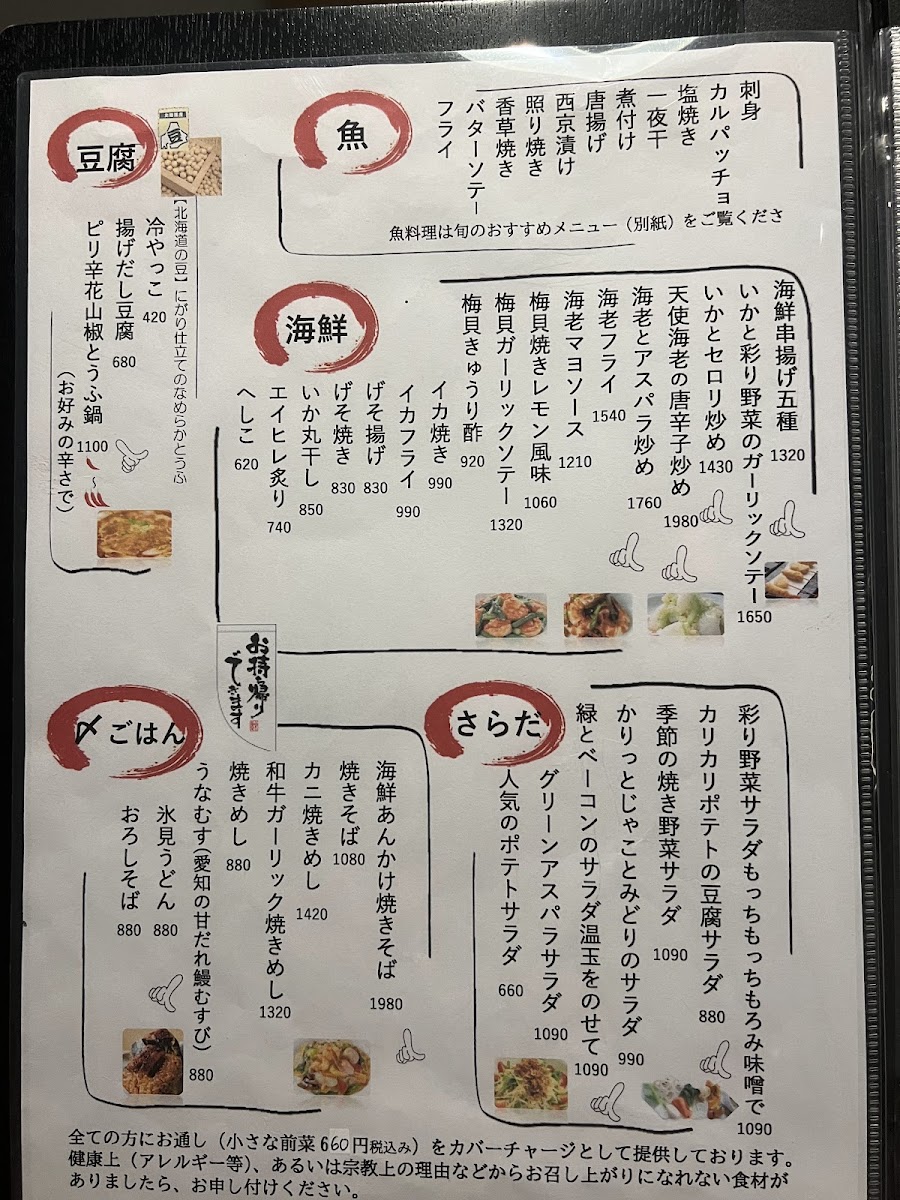 魚
刺身
カルパッチョ
塩焼き
一夜干
煮付け
唐揚げ
西京漬け
照り焼き
香草焼き
バターソテー
フライ
魚料理は旬のおすすめメニュー（別紙）をご覧くださ
豆腐
【北海道の豆】にがり仕立てのなめらかとうふ
冷やっこ 420
揚げだし豆腐 680
ピリ辛花山椒とうふ鍋 1100
（お好みの辛さで）
～
海鮮
海鮮串揚げ五種 1320
いかと彩り野菜のガーリックソテー 1650
いかとセロリ炒め 1430
天使海老の唐辛子炒め 1980
海老とアスパラ炒め 1760
海老フライ 1540
海老マヨソース 1210
梅貝焼きレモン風味 1060
梅貝ガーリックソテー 1320
梅貝きゅうり酢 920
イカ焼き 990
イカフライ 990
げそ揚げ 830
げそ焼き 830
いか丸干し 850
エイヒレ炙り 740
へしこ 620
お持ち帰り
できます
さらだ
彩り野菜サラダもっちもっちもろみ味噌で 1090
カリカリポテトの豆腐サラダ 880
季節の焼き野菜サラダ 1090
かりっとじゃことみどりのサラダ 990
緑とベーコンのサラダ温玉をのせて 1090
グリーンアスパラサラダ 1090
人気のポテトサラダ 660
〆ごはん
海鮮あんかけ焼きそば 1980
焼きそば 1080
カニ焼きめし 1420
和牛ガーリック焼きめし 1320
焼きめし 880
うなむす（愛知の甘だれ鰻むすび） 880
氷見うどん 880
おろしそば 880
全ての方にお通し（小さな前菜660円税込み）をカバーチャージとして提供しております。
健康上（アレルギー等）、あるいは宗教上の理由などからお召し上がりになれない食材が
ありましたら、お申し付けください。